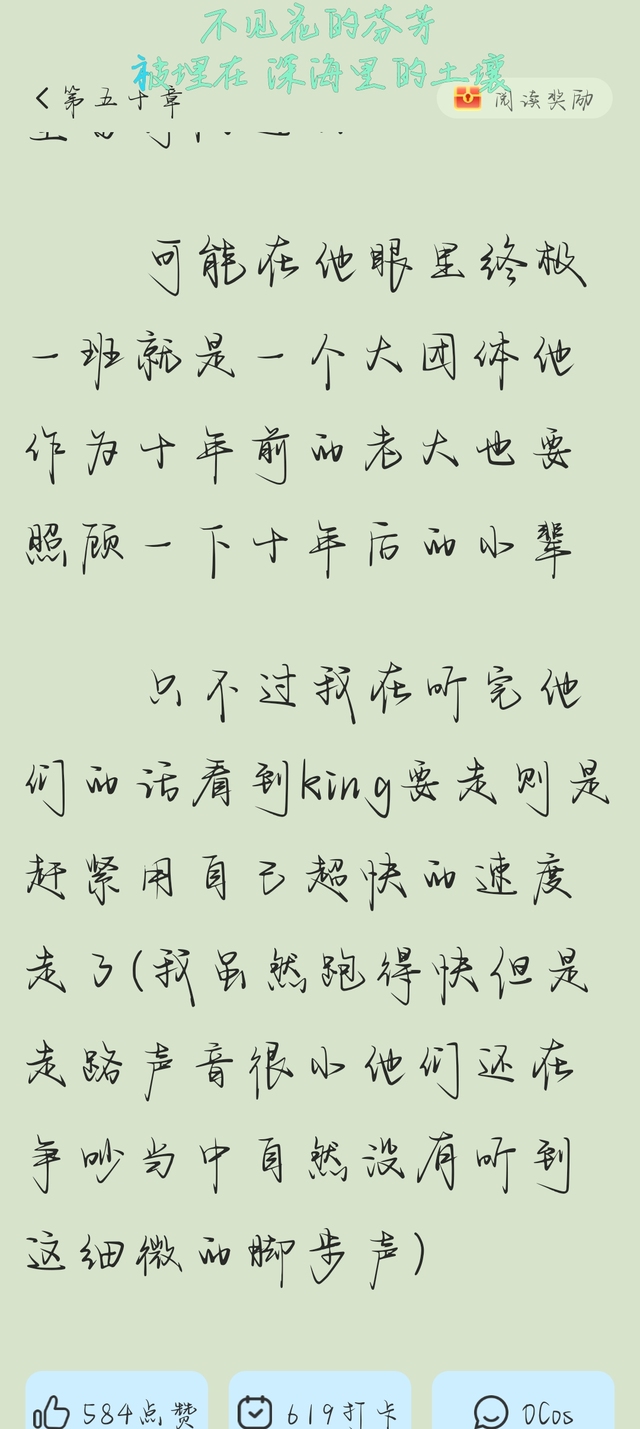 不见花的芬芳
被埋在 深海里的土壤
第五十章
阅读奖励
可能在他眼里终极
一班就是一个大团体他
作为十年前的老大也要
照顾一下十年后的小辈
只不过我在听完他
们的话看到king要走则是
赶紧用自己超快的速度
走了(我虽然跑得快但是
走路声音很小他们还在
争吵当中自然没有听到
这细微的脚步声)
584点赞
619打卡
0Cos